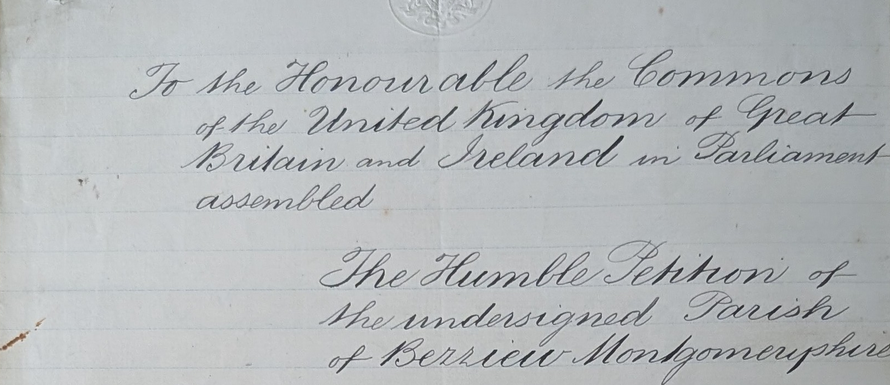 To the Honourable the Commons
of the United Kingdom of Great
Britain and Ireland in Parliament
assembled
The Humble Petition of
the undersigned Parish
of Berriew Montgomeryshire